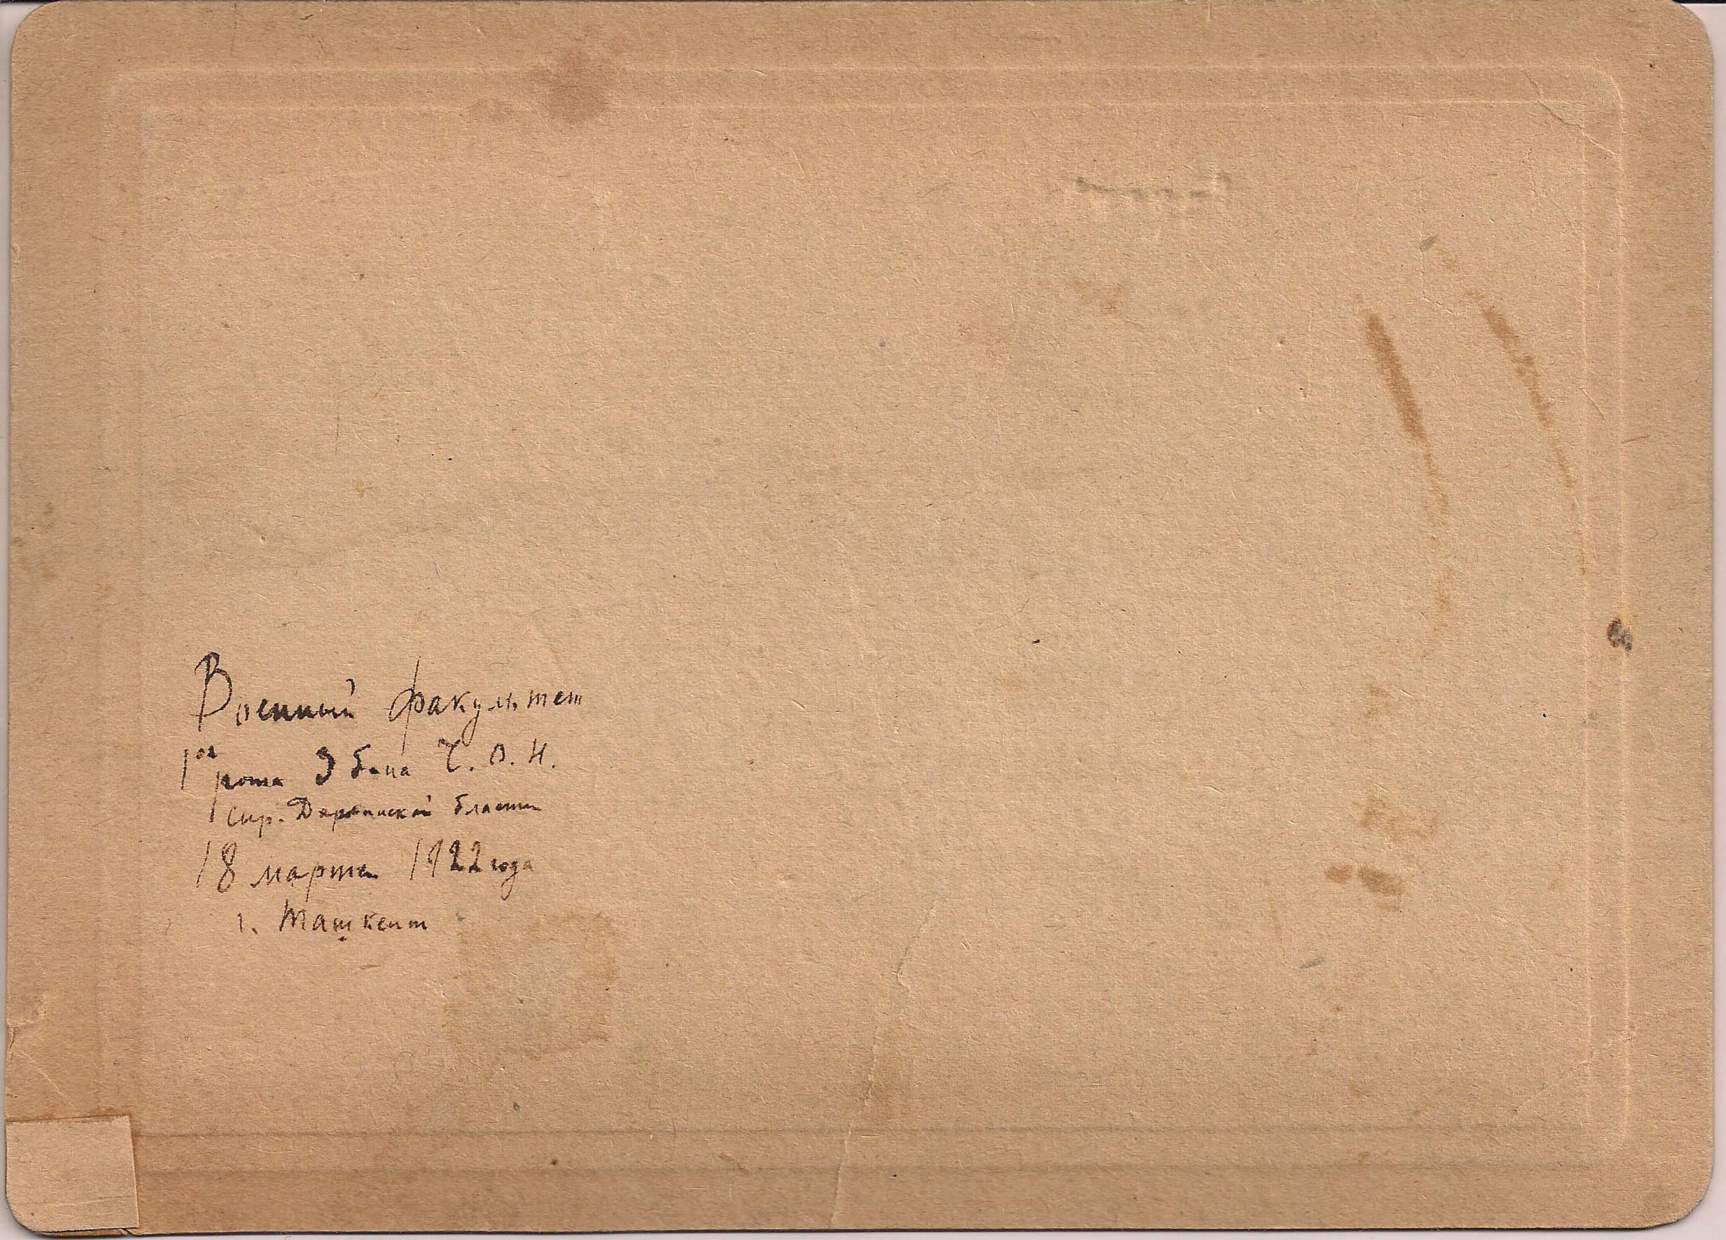 Военный факультет
1ая рота 3 б-на Ч.О.Н.
Сыр. Дарьинской бласти
18 марта 1922 года
г. Ташкент